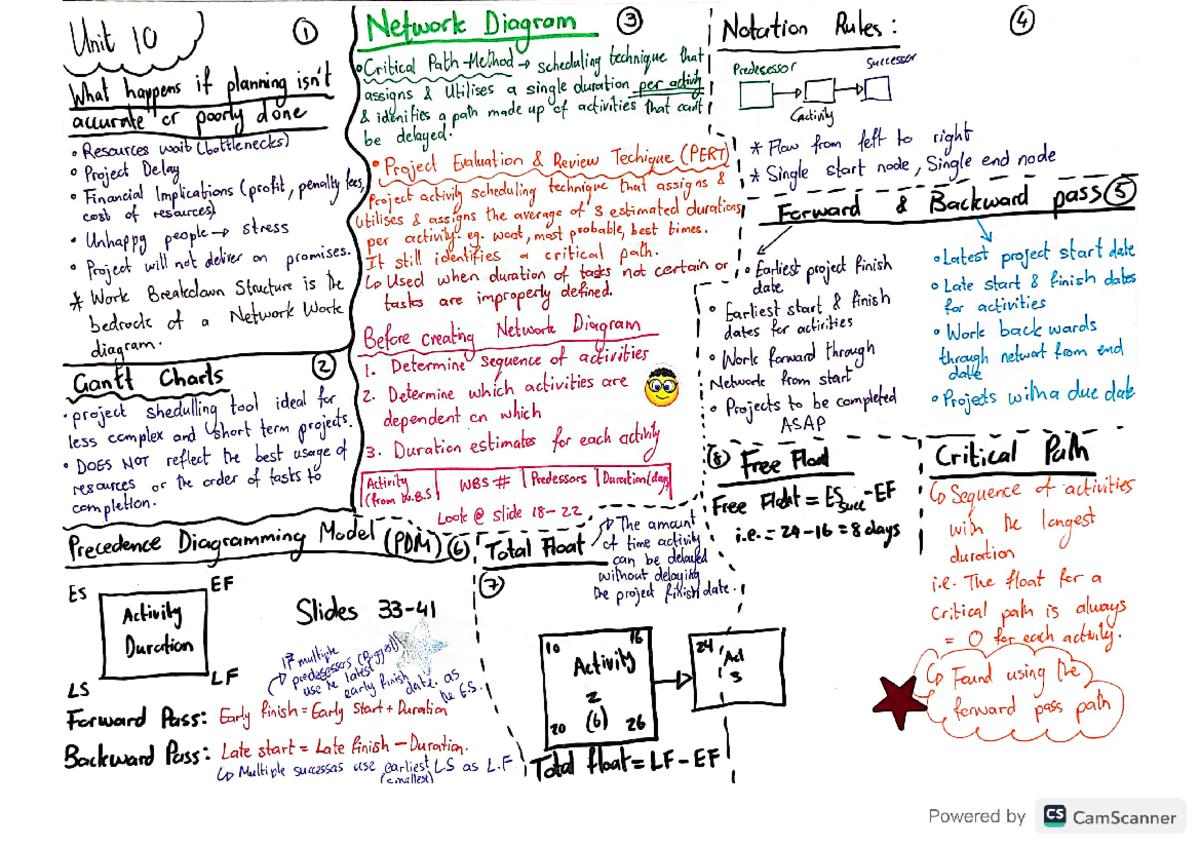 Unit 10
①
What happens if planning isn't
accurate or poorly done
• Resources wait (bottlenecks)
• Project Delay
• Financial Implications (profit, penalty fees,
cost of resources)
• Unhappy people → stress
• Project will not deliver on promises.
* Work Breakdown Structure is the
bedrock of a Network Work
diagram.
②
Gantt Charts
• project shedulling tool ideal for
less complex and short term projects.
• DOES NOT reflect the best usage of
resources or the order of tasks to
completion.
Network Diagram ③
• Critical Path-Method → scheduling technique that
assigns & Utilises a single duration per activity
& idenifies a path made up of activities that can't
be delayed.
• Project Evaluation & Review Techique (PERT)
Project activity scheduling technique that assigns &
utilises & assigns the average of 3 estimated durations
per activity. eg. worst, most probable, best times.
It still identifies a critical path.
↳ Used when duration of tasks not certain or
tasks are improperly defined.
Before creating Network Diagram
1. Determine sequence of activities
2. Determine which activities are
dependent on which
3. Duration estimates for each activity
Activity
(from W.B.S)
WBS #
Predessors
Duration (days)
Look @ slide 18-22
Notation Rules: ④
Predesessor
Successor
Activity
* Flow from left to right
* Single start node, Single end node
Forward & Backward pass ⑤
• Earliest project finish
date
• Earliest start & finish
dates for activities
• Work forward through
Network from start
• Projects to be completed
ASAP
• Latest project start date
• Late start & finish dates
for activities
• Work back wards
through networt from end
date
• Projets with a due date
Precedence Diagramming Model (PDM) ⑥
ES
EF
Activity
Duration
LS
LF
Slides 33-41
If multiple
predesessors (Biggest)
use the latest
early finish date as
the E.S.
Forward Pass: Early finish = Early Start + Duration
Backward Pass: Late start = Late finish - Duration.
↳ Multiple successas use earliest LS as L.F
(smallest)
Total Float
⑦
→ The amount
of time activity
can be delayed
without delaying
the project finish date.
10
16
Activity
2
(6)
20
26
24
Act
3
Total float = LF - EF
⑧ Free Float
Free Float = ES succ - EF
i.e. = 24 - 16 = 8 days
Critical Path
↳ Sequence of activities
with the longest
duration
i.e. The float for a
critical path is always
= 0 for each activity.
↳ Found using the
forward pass path
Powered by CS CamScanner